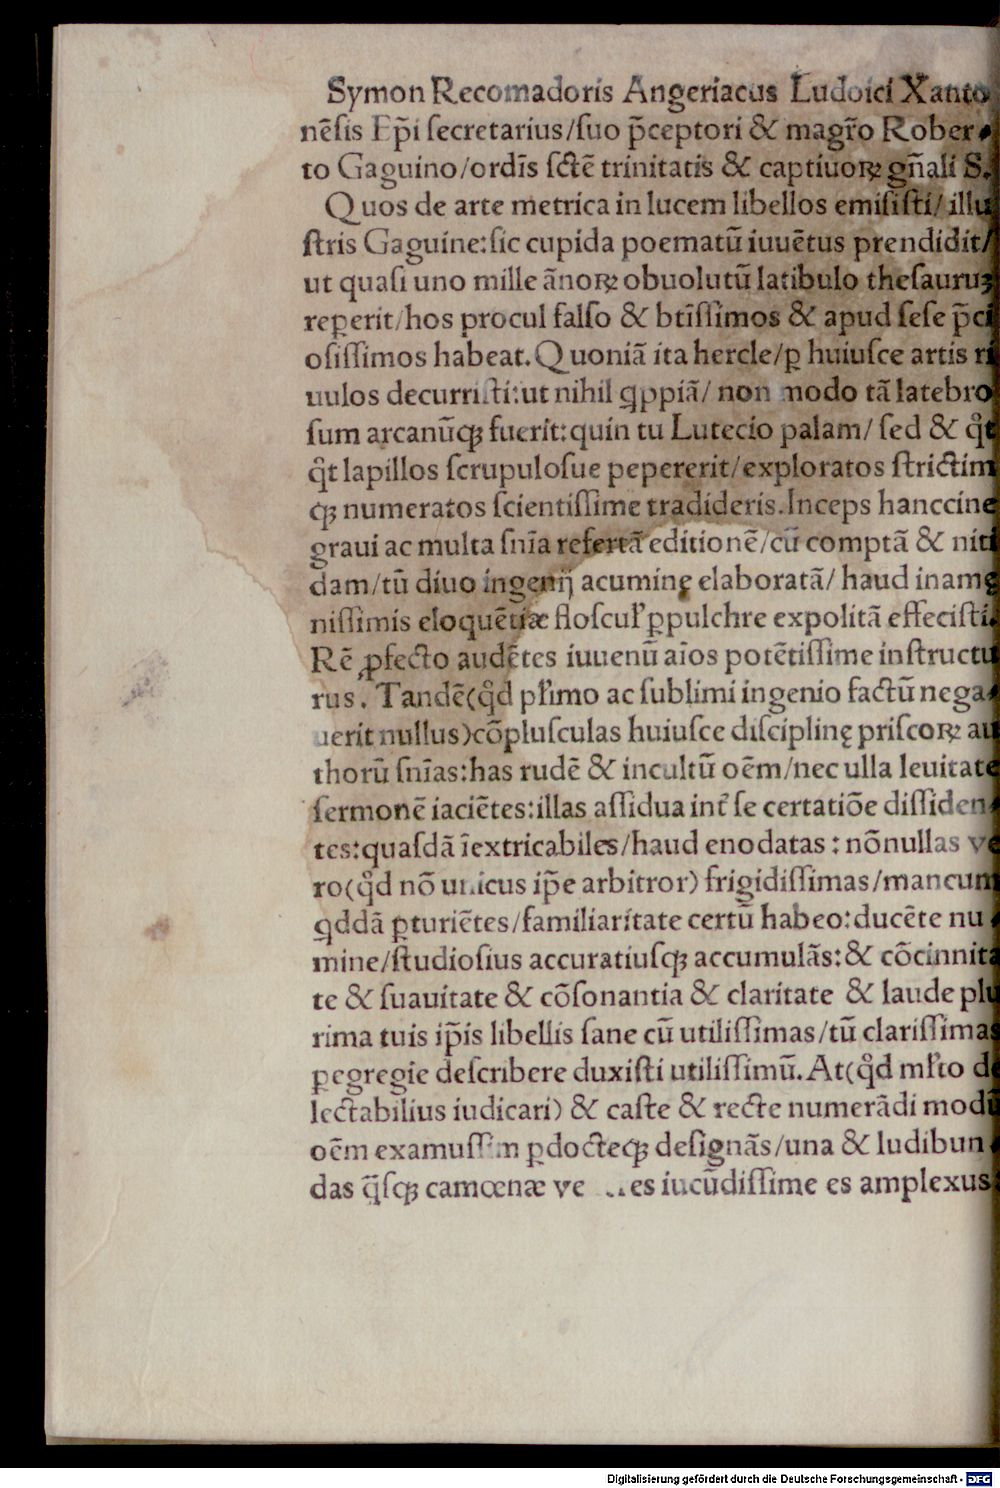 Symon Recomadoris Angeriacus Ludoici Xanto
nēſis Ep̄i ſecretarius/ſuo p̄ceptori & magr̄o Rober⸗
to Gaguino/ordīs ſctē trinitatis & captiuoꝝ gn̄ali S.
Quos de arte metrica in lucem libellos emiſiſti/ illu
ſtris Gaguine:ſic cupida poematū iuuētus prendidit/
ut quaſi uno mille ānoꝝ obuolutū latibulo theſauruꝫ
reperit/hos procul falſo & btīſſimos & apud ſeſe p̄ci
oſiſſimos habeat. Quoniā ita hercle/ꝑ huiuſce artis ri
uulos decurriſti:ut nihil qͥppiā/ non modo tā latebro
ſum arcanūqꝫ fuerit:quin tu Lutecio palam/ ſed & qͦt
qͦt lapillos ſcrupuloſue pepererit/exploratos ſtrictim
qꝫ numeratos ſcientiſſime tradideris. Inceps hanccine
graui ac multa ſnīa refertā editionē/cū comptā & niti
dam/tū diuo ingenij acuminę elaboratā/ haud inamę
niſſimis eloquētiæ floſcul̕ ꝑpulchre expolitā effeciſti.
Rē ꝓfecto audētes iuuenū aīos potētiſſime inſtructu
rus. Tandē(qͦd pͥſimo ac ſublimi ingenio factū nega⸗
uerit nullus)cōpluſculas huiuſce diſciplinę priſcoꝝ au
thorū ſnīas:has rudē & incultū oēm/nec ulla leuitate
ſermonē iaciētes:illas aſſidua int̕ ſe certatiōe diſſiden⸗
tes:quaſdā īextricabiles/haud enodatas : nōnullas ve
ro(qͦd nō unicus ip̄e arbitror) frigidiſſimas/mancum
qͥddā ꝑturiētes/familiaritate certū habeo:ducēte nu⸗
mine/ſtudioſius accuratiuſqꝫ accumulās:& cōcinnita
te & ſuauitate & cōſonantia & claritate & laude plu
rima tuis ip̄is libellis ſane cū utiliſſimas/tū clariſſimas
ꝑegregie deſcribere duxiſti utiliſſimū. At(qͦd ml̕to de
lectabilius iudicari) & caſte & recte numerādi modū
oēm examuſſim ꝑdocteqꝫ deſignās/una & ludibun⸗
das qͣſqꝫ camœnæ iucūdiſſime es amplexus:
Digitalisierung gefördert durch die Deutsche Forschungsgemeinschaft - DFG